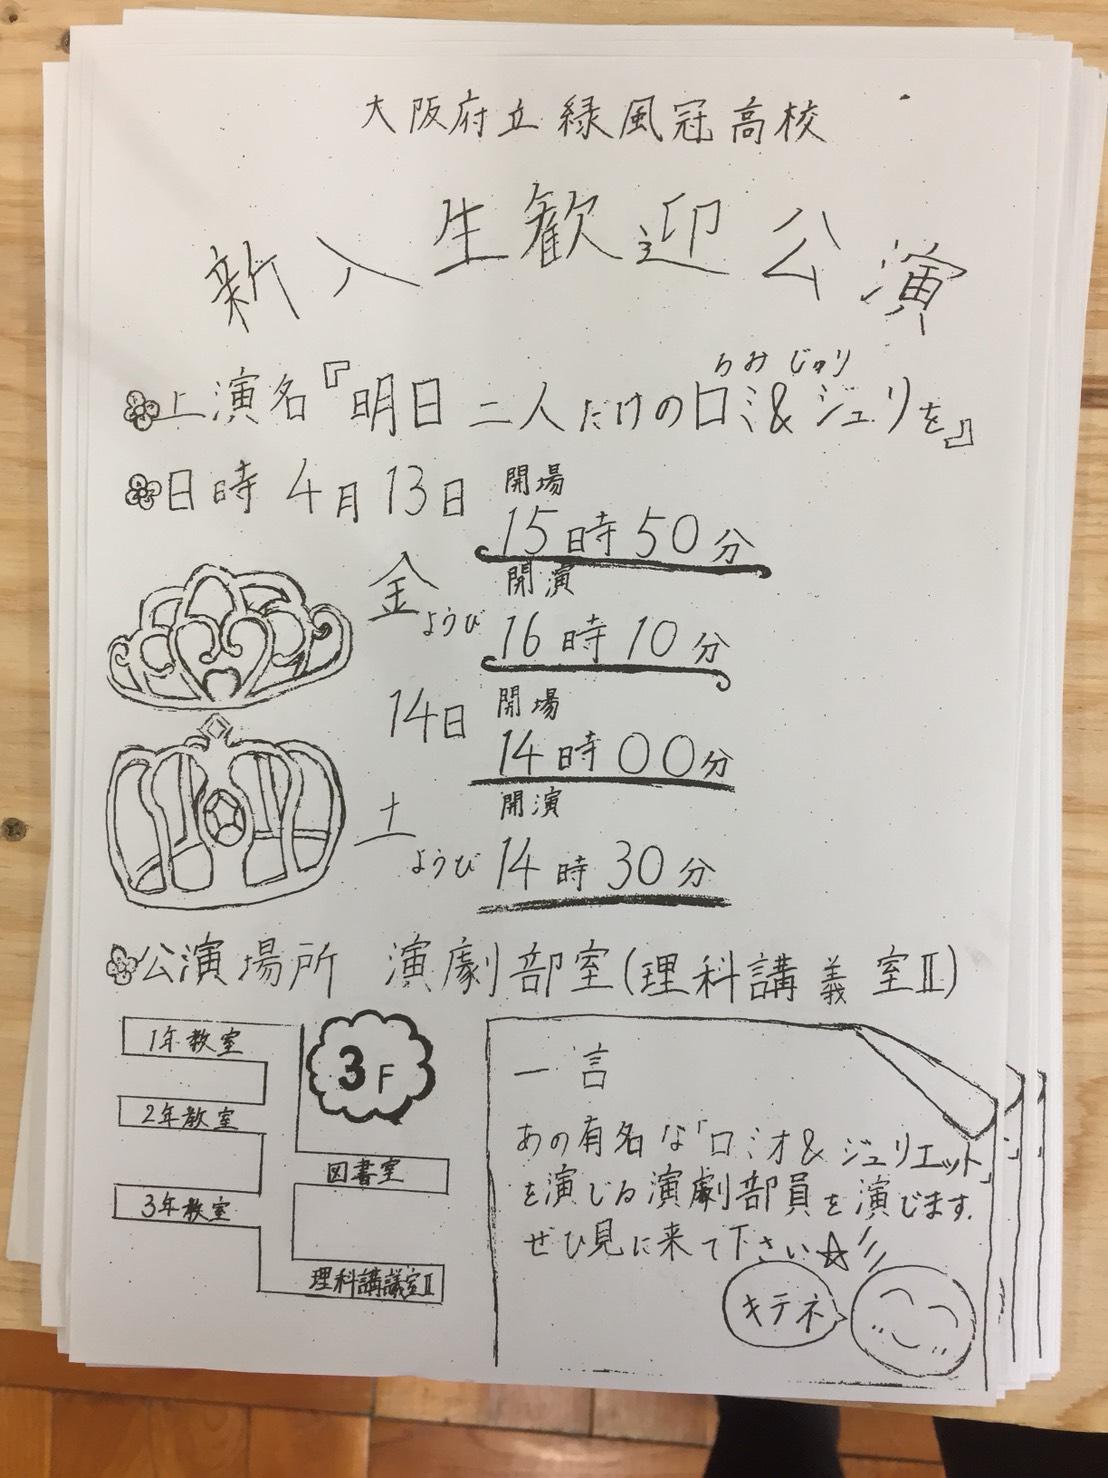 大阪府立緑風冠高校
新入生歓迎公演
ろみ じゅり
上演名『明日二人だけのロミ&ジュリを』
日時 4月13日 開場
15時50分
金ようび 開演
16時10分
14日 開場
14時00分
土ようび 開演
14時30分
公演場所 演劇部室(理科講義室Ⅱ)
1年教室
2年教室
3年教室
3F
図書室
理科講議室Ⅱ
一言
あの有名な「ロミオ&ジュリエット」
を演じる演劇部員を演じます.
ぜひ見に来て下さい☆
キテネ